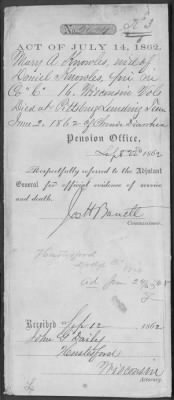 ACT OF JULY 14, 1862.
Mary A. Knowles, wid. of
Daniel Knowles, Pri. Co
"C" 16. Wisconsin Vols
Died at Pittsburg Landing Tenn
June 2. 1862 of Chronic Diarrhea
Pension Office,
1862
Respectfully referred to the Adjutant
General for official evidence of service
and death.
Jos H Barrett
Commissioner.
Received Sep. 12 1862
John G Daily
Hustisford
Wisconsin
Attorney.